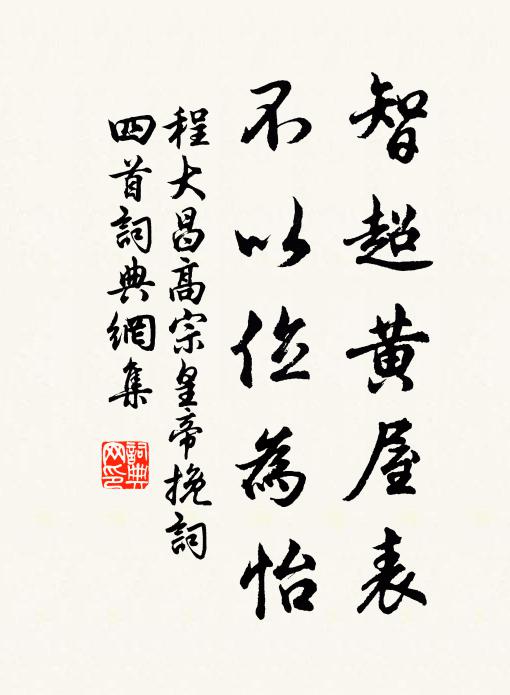 智超黃屋表
不以位為怡
程大昌高宗皇帝挽詞
四首詞典網集
詞典
网印